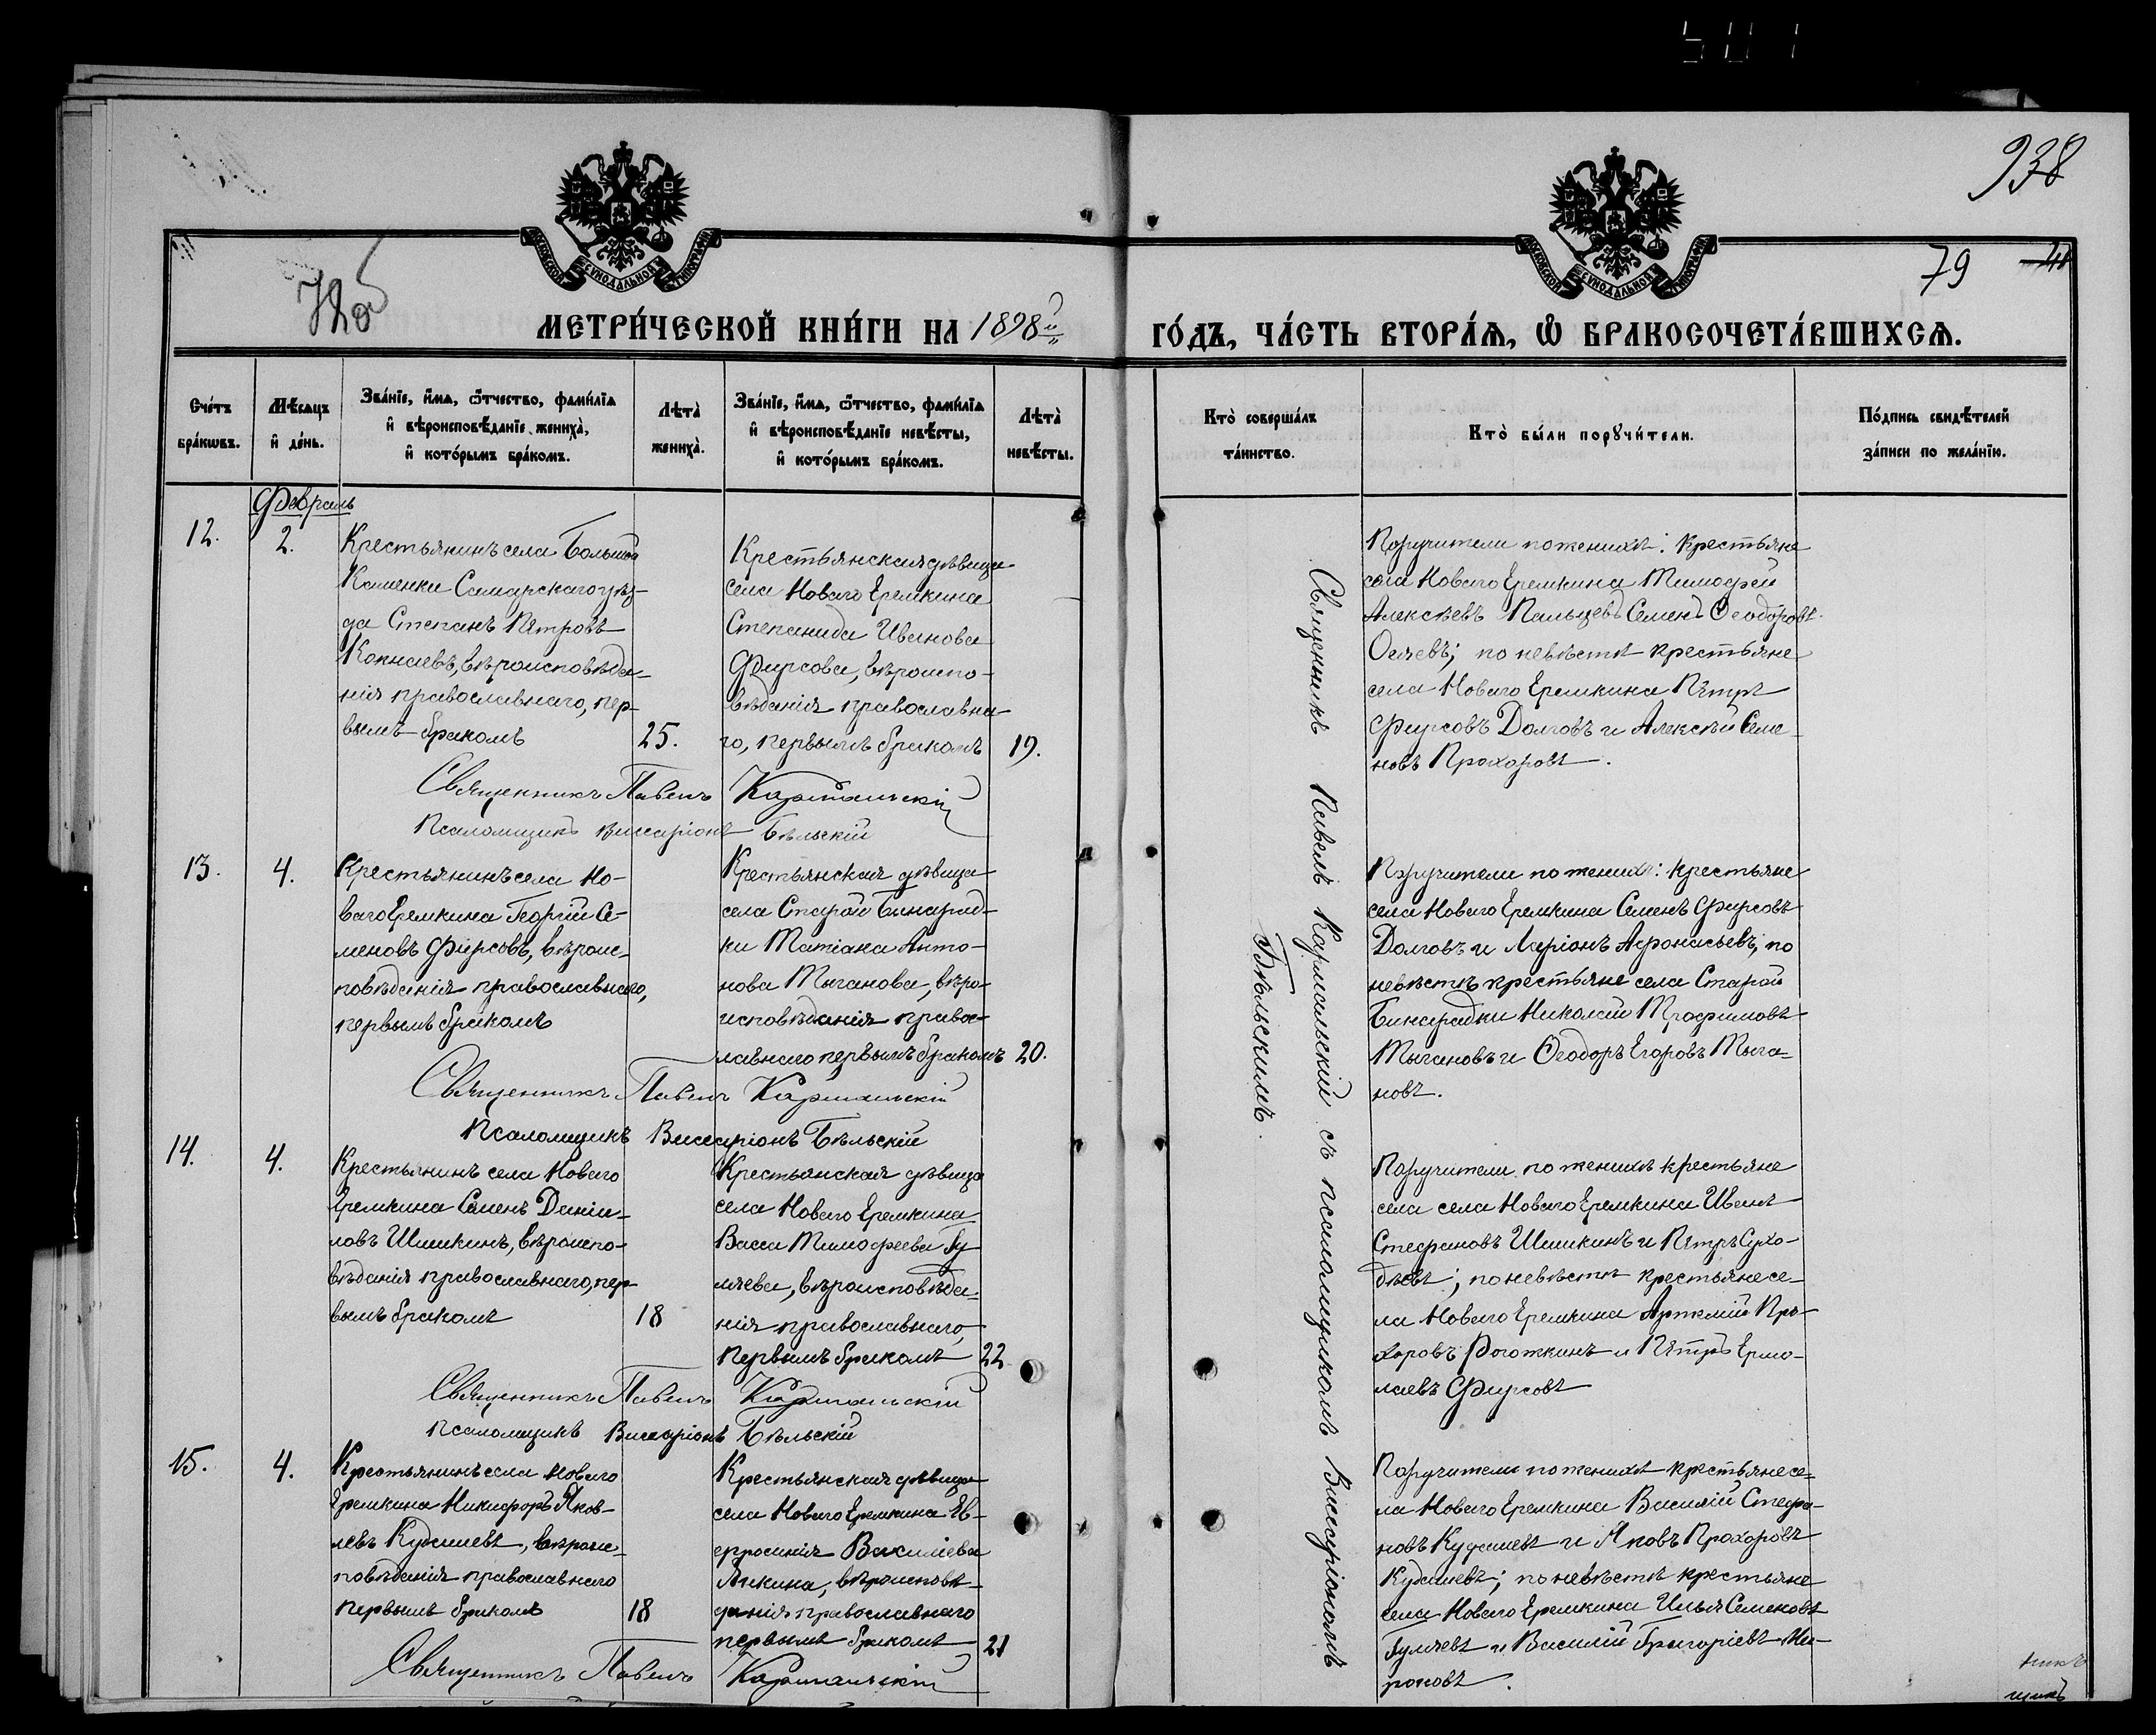 938
79
МЕТРИ́ЧЕСКОЙ КНИ́ГИ НА 1898й
ГО́ДЪ, ЧА́СТЬ ВТОРА́Я, Ѡ БРАКОСОЧЕТА́ВШИХСЯ.
МОСКОВСКОЙ СѴНОДАЛЬНОЙ ТИПОГРАФІИ
МОСКОВСКОЙ СѴНОДАЛЬНОЙ ТИПОГРАФІИ
Сче́тъ бра́кѡвъ.
Мѣ́сяцъ и҆ де́нь.
Зва́ніе, и҆́мя, ѻ҆́тчество, фами́лїа
и҆ вѣроисповѣ́даніе жениха̀,
и҆ кото́рымъ бра́комъ.
Лѣта̀ жениха̀.
Зва́ніе, и҆́мя, ѻ҆́тчество, фами́лїа
и҆ вѣроисповѣ́даніе невѣ́сты,
и҆ кото́рымъ бра́комъ.
Лѣта̀ невѣ́сты.
Кто̀ соверша́лъ та́инство.
Кто̀ бы́ли порꙋчи́тели.
По́дпись свидѣ́телей
за́писи по жела́нїю.
Февраль
12.
2.
Крестьянинъ села Большой
Каменки Самарскаго уѣз-
да Степанъ Петровъ
вѣроисповѣда-
нія православнаго, пер-
вымъ бракомъ
25.
Крестьянская дѣвица
села Новаго Еремкина
Степанида Иванова
Фирсова, вѣроиспо-
вѣданія православна-
го, первымъ бракомъ
19.
Поручители по женихѣ: крестьяне
села Новаго Еремкина Тимофей
Алексѣевъ Пальцевъ Семенъ Ѳеодоровъ
по невѣстѣ крестьяне
села Новаго Еремкина Петръ
Фирсовъ Долговъ и Алексѣй Семе-
новъ Прохоровъ.
Священникъ Павелъ Кармальскій
Псаломщикъ Виссаріонъ Бѣльскій
13.
4.
Крестьянинъ села Но-
ваго Еремкина Георгій Се-
меновъ Фирсовъ, вѣроис-
повѣданія православнаго,
первымъ бракомъ
Крестьянская дѣвица
села Старой Бинарад-
ки Татіана Анто-
нова Мыганова, вѣро-
исповѣданія правос-
лавнаго первымъ бракомъ
20.
Поручители по женихѣ: крестьяне
села Новаго Еремкина Семенъ Фирсовъ
Долговъ и Ларіонъ Афонасьевъ; по
невѣстѣ крестьяне села Старой
Бинарадки Николай Трофимовъ
Мыгановъ и Ѳеодоръ Егоровъ Мыга-
новъ.
Священникъ Павелъ Кармальскій
Псаломщикъ Виссаріонъ Бѣльскій
14.
4.
Крестьянинъ села Новаго
Еремкина Семенъ Даніи-
ловъ Шишкинъ, вѣроиспо-
вѣданія православнаго, пер-
вымъ бракомъ
18
Крестьянская дѣвица
села Новаго Еремкина
Васса Тимофеева Гу-
ляева, вѣроисповѣда-
нія православнаго,
первымъ бракомъ
22
Поручители по женихѣ крестьяне
села села Новаго Еремкина Иванъ
Стефановъ Шишкинъ и Петръ Сухо-
дѣевъ; по невѣстѣ крестьяне се-
ла Новаго Еремкина Артемій Про-
хоровъ Рогожкинъ и Петръ Ермо-
лаевъ Фирсовъ
Священникъ Павелъ Кармальскій
Псаломщикъ Виссаріонъ Бѣльскій
15.
4.
Крестьянинъ села Новаго
Еремкина Никифоръ Яков-
левъ Кудашевъ, вѣроис-
повѣданія православнаго
первымъ бракомъ
18
Крестьянская дѣвица
села Новаго Еремкина Ев-
фросинія Василіева
Аникина, вѣроисповѣ-
данія православнаго
первымъ бракомъ
21
Поручители по женихѣ крестьяне се-
ла Новаго Еремкина Василій Стефа-
новъ Кудашевъ и Яковъ Прохоровъ
Кудашевъ; по невѣстѣ крестьяне
села Новаго Еремкина Илья Семеновъ
Гуляевъ и Василій Григоріевъ Ми-
роновъ.
Священникъ Павелъ Кармальскій
Священникъ Павелъ Кармальскій съ псаломщикомъ Виссаріономъ
Бѣльскимъ.
никъ
щикъ